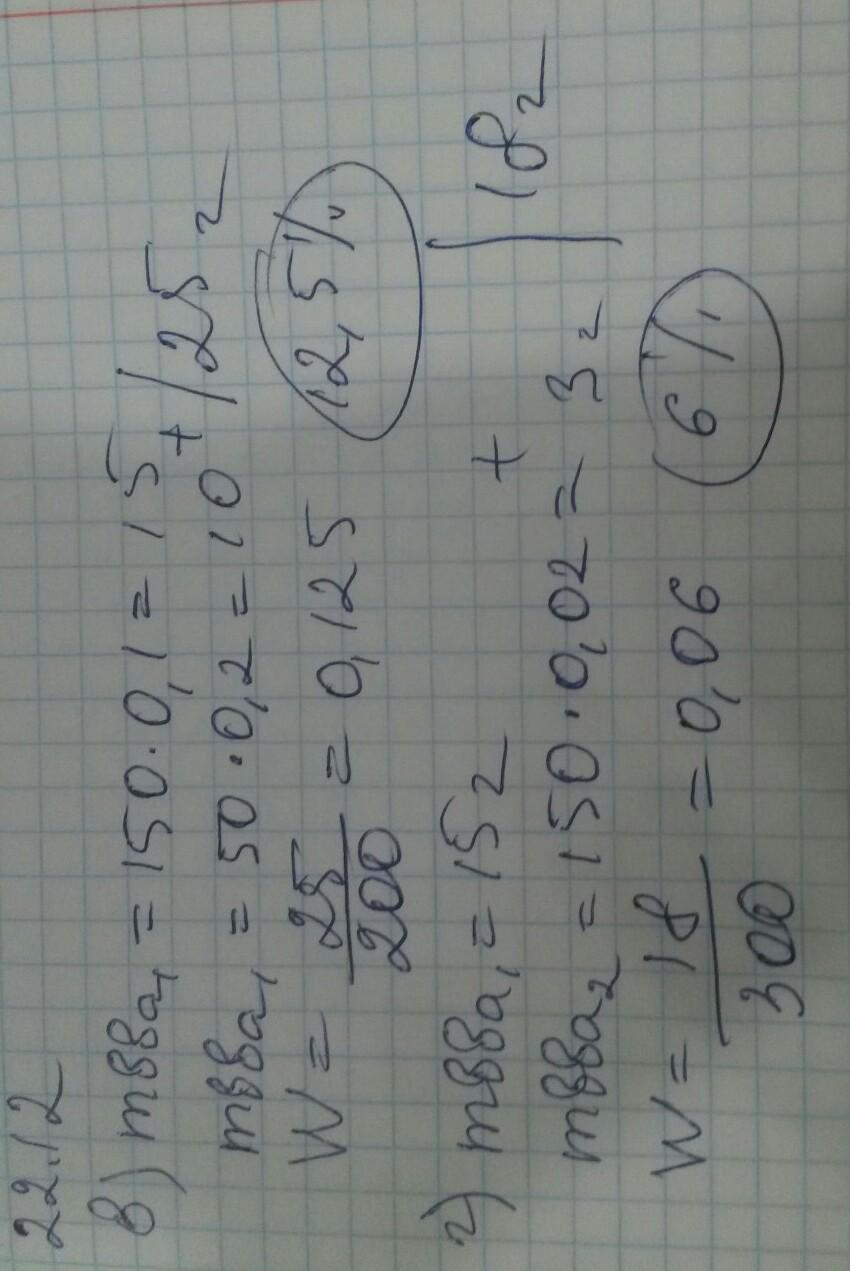 22.12
в) mвва₁ = 150·0,1 = 15
+ | 25 г
mвва₁ = 50·0,2 = 10
W = 25/200 = 0,125 12,5%
г) mвва₁ = 15 г
+ | 18 г
mвва₂ = 150·0,02 = 3 г
W = 18/300 = 0,06 6%